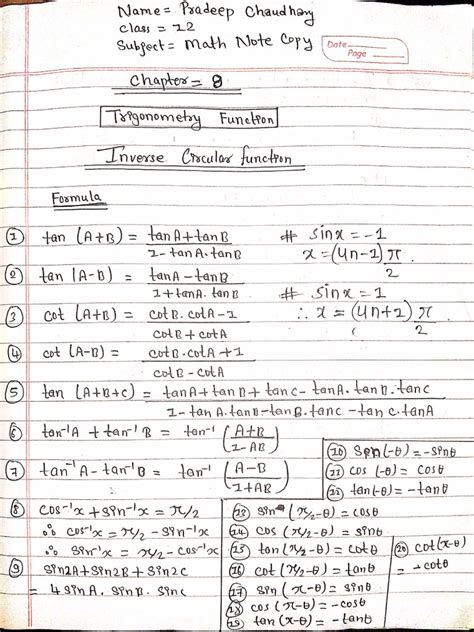 Name = Pradeep Chaudhary
Class = 12
Subject = Math Note Copy
Date
Page
Chapter = 8
Trigonometry Function
Inverse Circular function
Formula
① tan (A+B) = (tanA + tanB)/(1 - tanA.tanB)
# sinx = -1
x = (4n-1) π/2
② tan (A-B) = (tanA - tanB)/(1 + tanA. tanB)
# sinx = 1
∴ x = (4n+1) π/2
③ cot (A+B) = (cotB. cotA - 1)/(cotB + cotA)
④ cot (A-B) = (cotB. cotA + 1)/(cotB - cotA)
⑤ tan (A+B+C) = (tanA + tanB + tanC - tanA. tanB. tanC)/(1 - tanA.tanB - tanB.tanC - tanC.tanA)
⑥ tan⁻¹A + tan⁻¹B = tan⁻¹ ((A+B)/(1-AB))
⑦ tan⁻¹A - tan⁻¹B = tan⁻¹ ((A-B)/(1+AB))
⑧ cos⁻¹x + sin⁻¹x = π/2
∴ cos⁻¹x = π/2 - sin⁻¹x
∴ sin⁻¹x = π/2 - cos⁻¹x
⑨ sin2A + sin2B + sin2C
= 4 sinA. sinB. sinC
⑩ sin (-θ) = -sinθ
⑪ cos (-θ) = cosθ
⑫ tan(-θ) = -tanθ
⑬ sin (π/2-θ) = cosθ
⑭ cos (π/2-θ) = sinθ
⑮ tan (π/2-θ) = cotθ
⑯ cot (π/2-θ) = tanθ
⑰ sin (π-θ) = sinθ
⑱ cos (π-θ) = -cosθ
⑲ tan (π-θ) = -tanθ
⑳ cot(π-θ)
= -cotθ